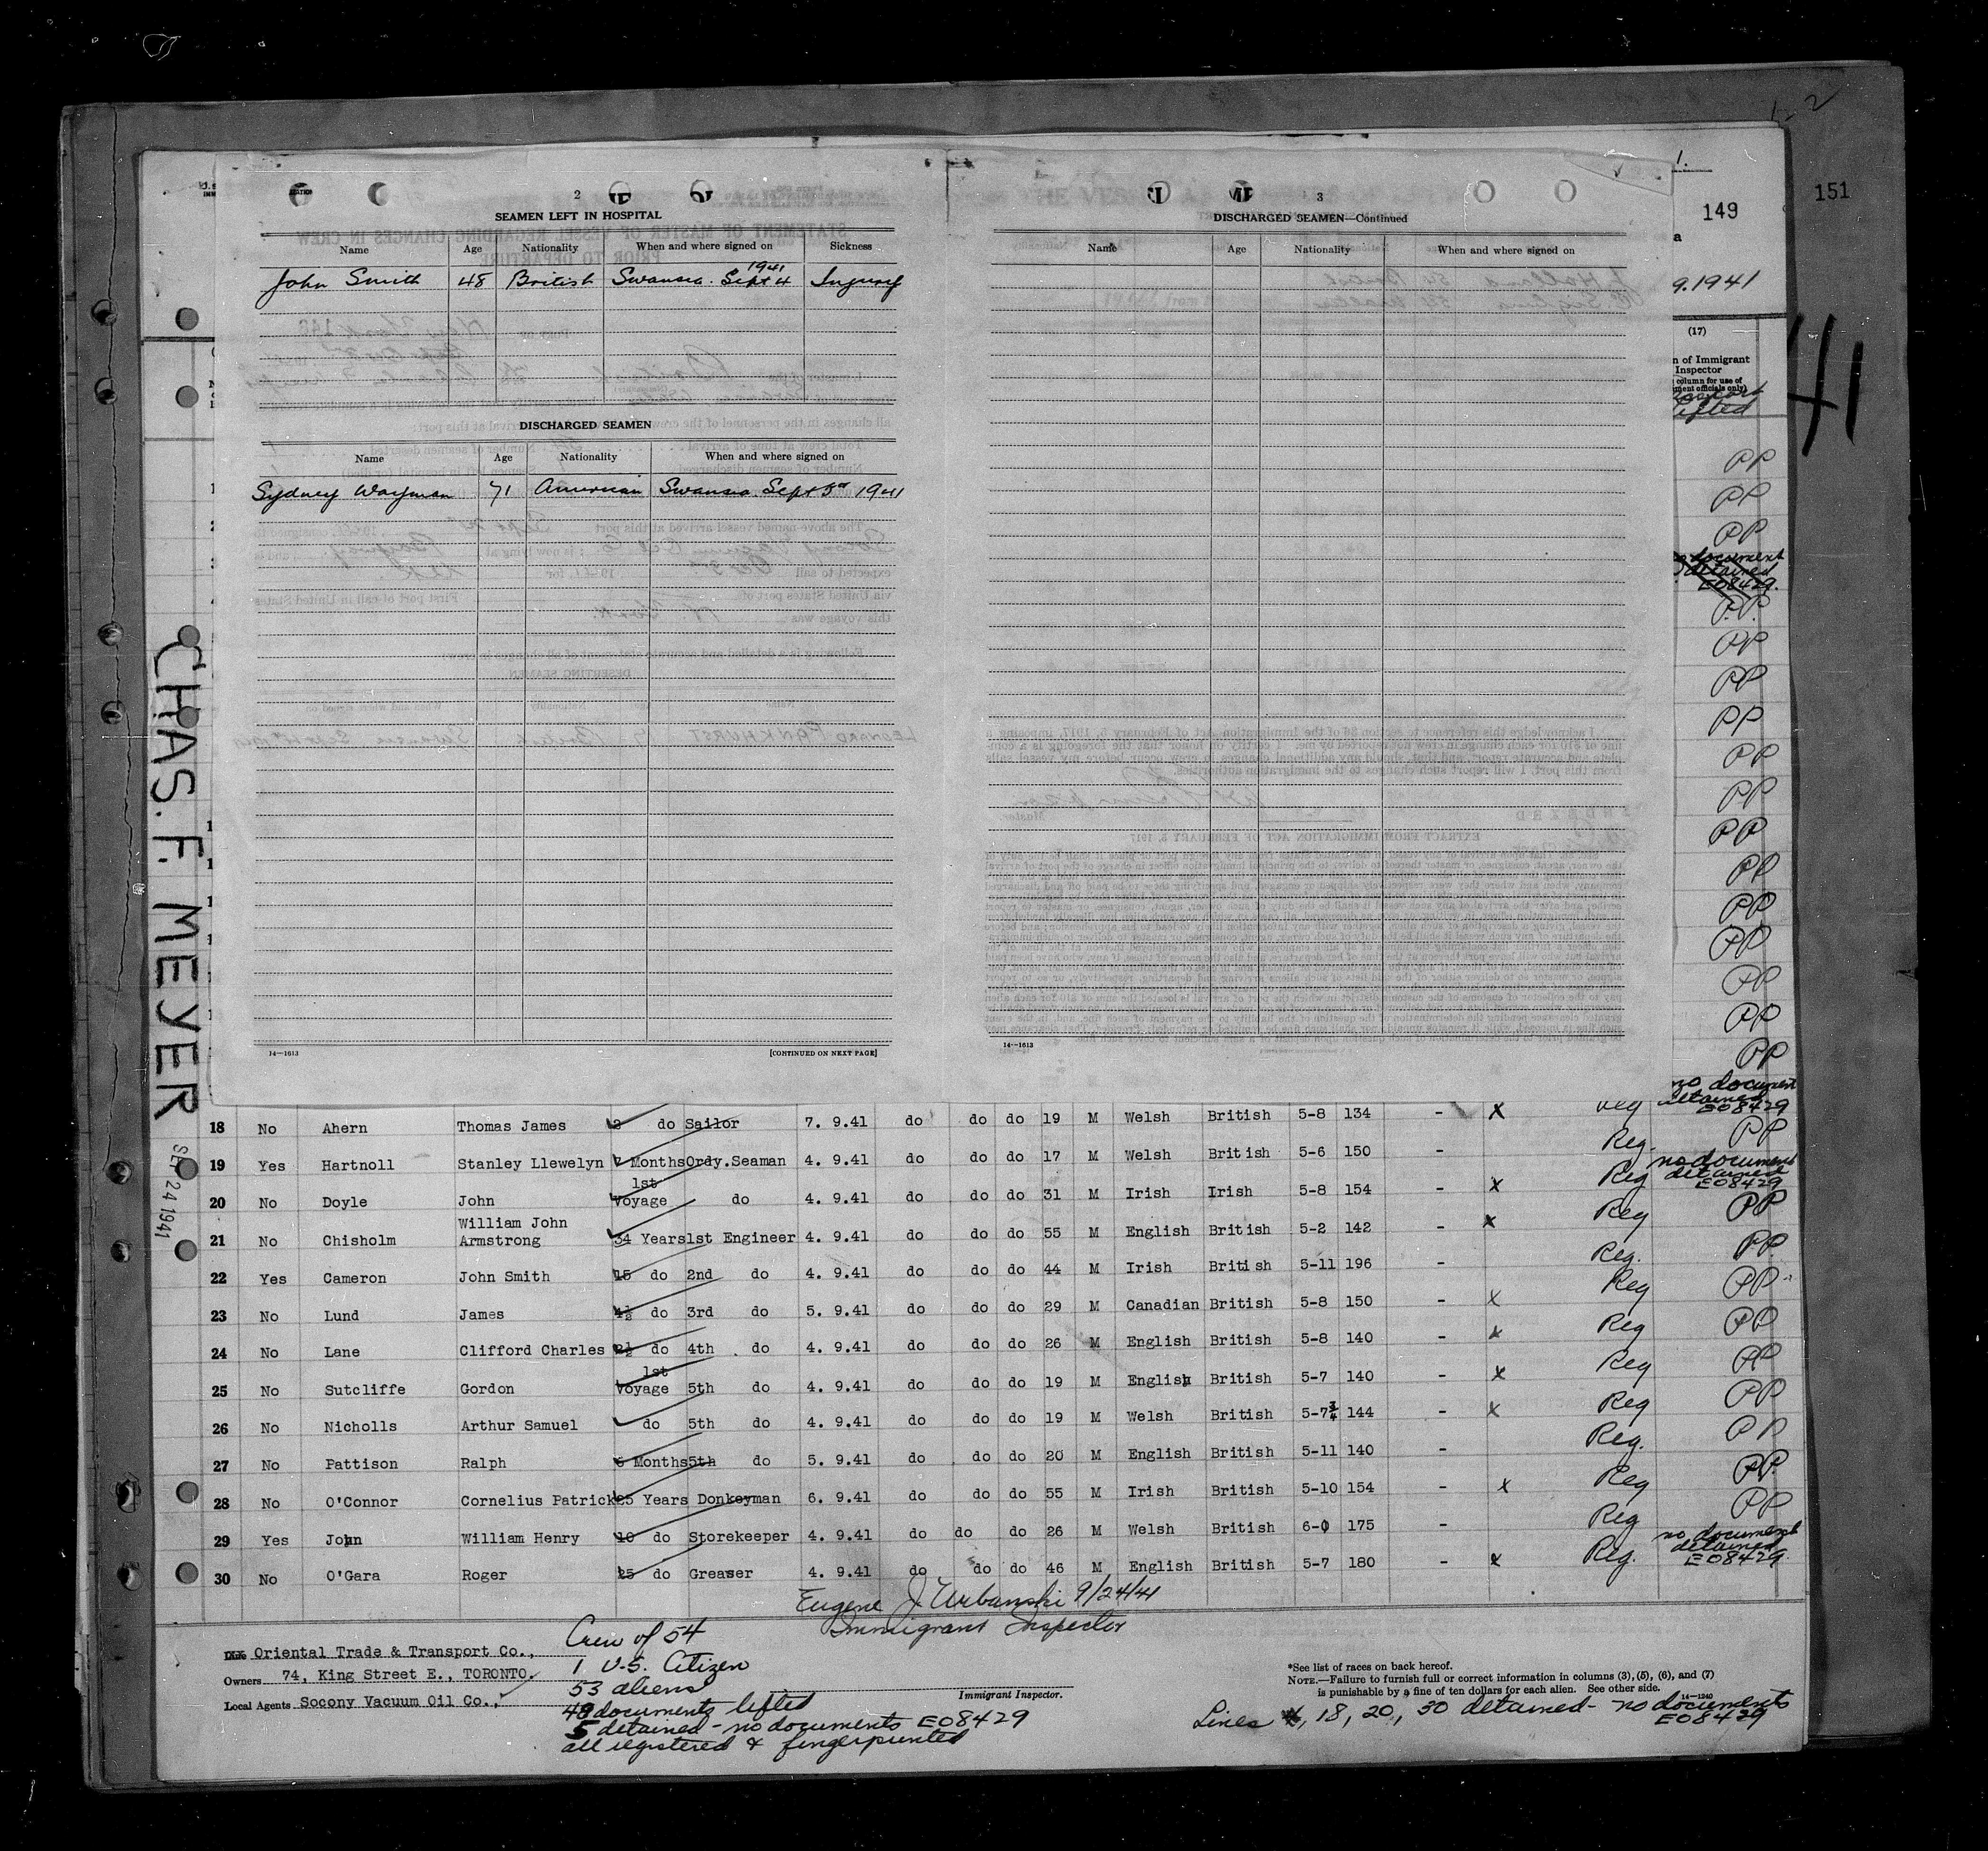 2
SEAMEN LEFT IN HOSPITAL
Name Age Nationality When and where signed on Sickness
John Smith 48 British Swansea. Sept 4 1941 Ingurey
DISCHARGED SEAMEN
Name Age Nationality When and where signed on
Sydney Wayman 71 American Swansea. Sept 5th 1941
14—1613 [CONTINUED ON NEXT PAGE]
3
DISCHARGED SEAMEN—Continued
Name Age Nationality When and where signed on
14—1613
1-2
151
1.
149
a
9.1941
41
(17)
n of Immigrant
Inspector
column for use of
ment officials only)
lifted
PP
PP
PP
no document
detained
E08429.
P.P.
PP
PP
PP
PP
PP
PP
PP
PP
PP
PP
PP
PP
no document
detained
E08429
CHAS. F. MEYER
SEP 24 1941
18 No Ahern Thomas James 2 do Sailor 7. 9.41 do do do 19 M Welsh British 5-8 134 - x Reg
19 Yes Hartnoll Stanley Llewelyn 7 Months Ordy.Seaman 4. 9.41 do do do 17 M Welsh British 5-6 150 - Reg. PP
20 No Doyle John 1st Voyage do 4. 9.41 do do do 31 M Irish Irish 5-8 154 - x Reg no document detained E08429
21 No Chisholm William John Armstrong 34 Years 1st Engineer 4. 9.41 do do do 55 M English British 5-2 142 - x Reg PP
22 Yes Cameron John Smith 15 do 2nd do 4. 9.41 do do do 44 M Irish British 5-11 196 - Reg. PP.
23 No Lund James 4½ do 3rd do 5. 9.41 do do do 29 M Canadian British 5-8 150 - x Reg PP
24 No Lane Clifford Charles 2½ do 4th do 4. 9.41 do do do 26 M English British 5-8 140 - x Reg PP
25 No Sutcliffe Gordon 1st Voyage 5th do 4. 9.41 do do do 19 M English British 5-7 140 - x Reg PP
26 No Nicholls Arthur Samuel do 5th do 4. 9.41 do do do 19 M Welsh British 5-7¾ 144 - x Reg PP
27 No Pattison Ralph 6 Months 5th do 5. 9.41 do do do 20 M English British 5-11 140 - Reg. PP
28 No O'Connor Cornelius Patrick 25 Years Donkeyman 6. 9.41 do do do 55 M Irish British 5-10 154 - x Reg PP.
29 Yes John William Henry 10 do Storekeeper 4. 9.41 do do do 26 M Welsh British 6-0 175 - Reg PP
30 No O'Gara Roger 25 do Greaser 4. 9.41 do do do 46 M English British 5-7 180 - x Reg. no document detained E08429.
Eugene J. Urbanski 9/24/41
Immigrant Inspector
Oriental Trade & Transport Co.,
Owners 74, King Street E., TORONTO.
Local Agents Socony Vacuum Oil Co.,
Crew of 54
1 U.S. Citizen
53 aliens
48 documents lifted
5 detained - no documents E08429
all registered & fingerprinted
Immigrant Inspector.
*See list of races on back hereof.
NOTE.—Failure to furnish full or correct information in columns (3), (5), (6), and (7)
is punishable by a fine of ten dollars for each alien. See other side.
14—1240
Lines 4, 18, 20, 30 detained - no documents
E08429